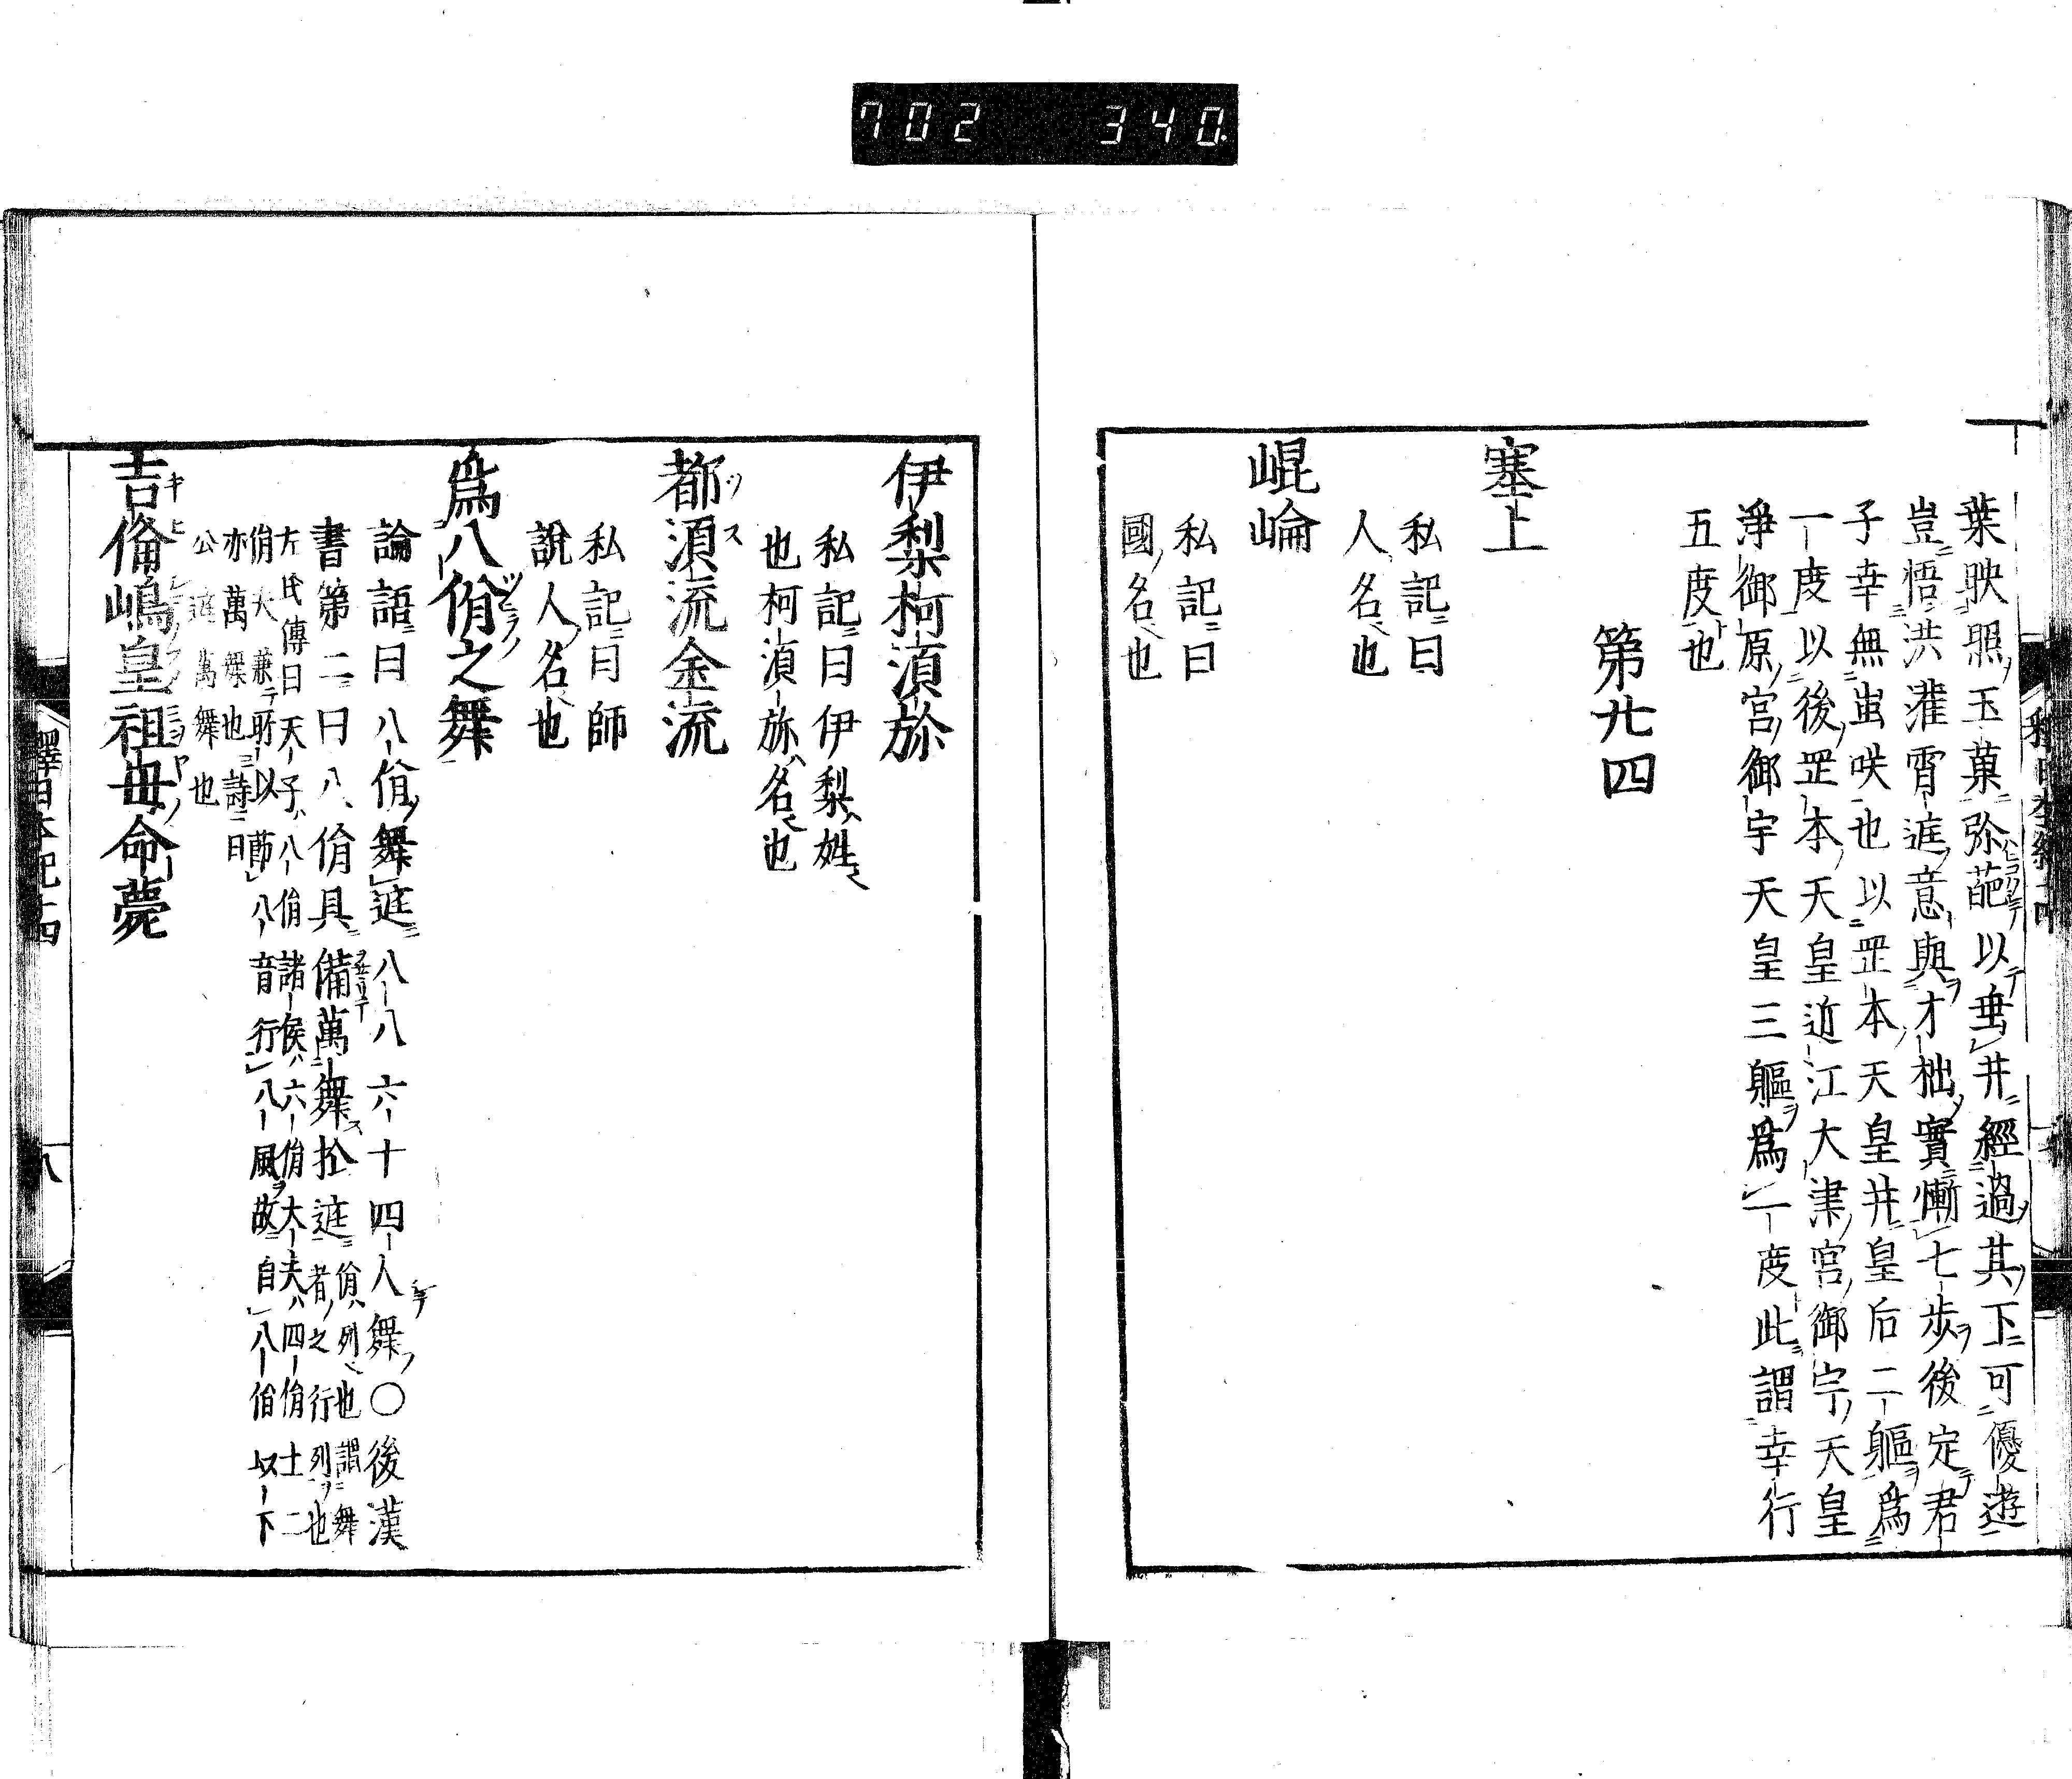 702 340
葉映照玉菓弥葩以垂井經過其下可優遊
豈悟洪灌霄庭意與才拙實慚七步後定君
子幸無蚩咲也以罡本天皇井皇后二軀爲
一度以後罡本天皇近江大津宮御宇天皇
淨御原宮御宇天皇三軀爲一度此謂幸行
五度也
第廿四
塞上
私記曰
人名也
崐崘
私記曰
國名也
伊梨柯湏旀
私記曰伊梨姓
也柯湏旀名也
都湏流金流
私記曰師
說人名也
爲八佾之舞
論語曰八佾舞庭八八六十四人舞〇後漢
書第二曰八佾具備萬舞扵庭佾列也謂舞
者之行列也
左氏傳曰天子八佾諸侯六佾大夫四佾士二
佾夫兼所以節八音行八風故自八佾以下
亦萬舞也詩曰
公庭萬舞也
吉備嶋皇祖母命薨
釋日本紀十四
八